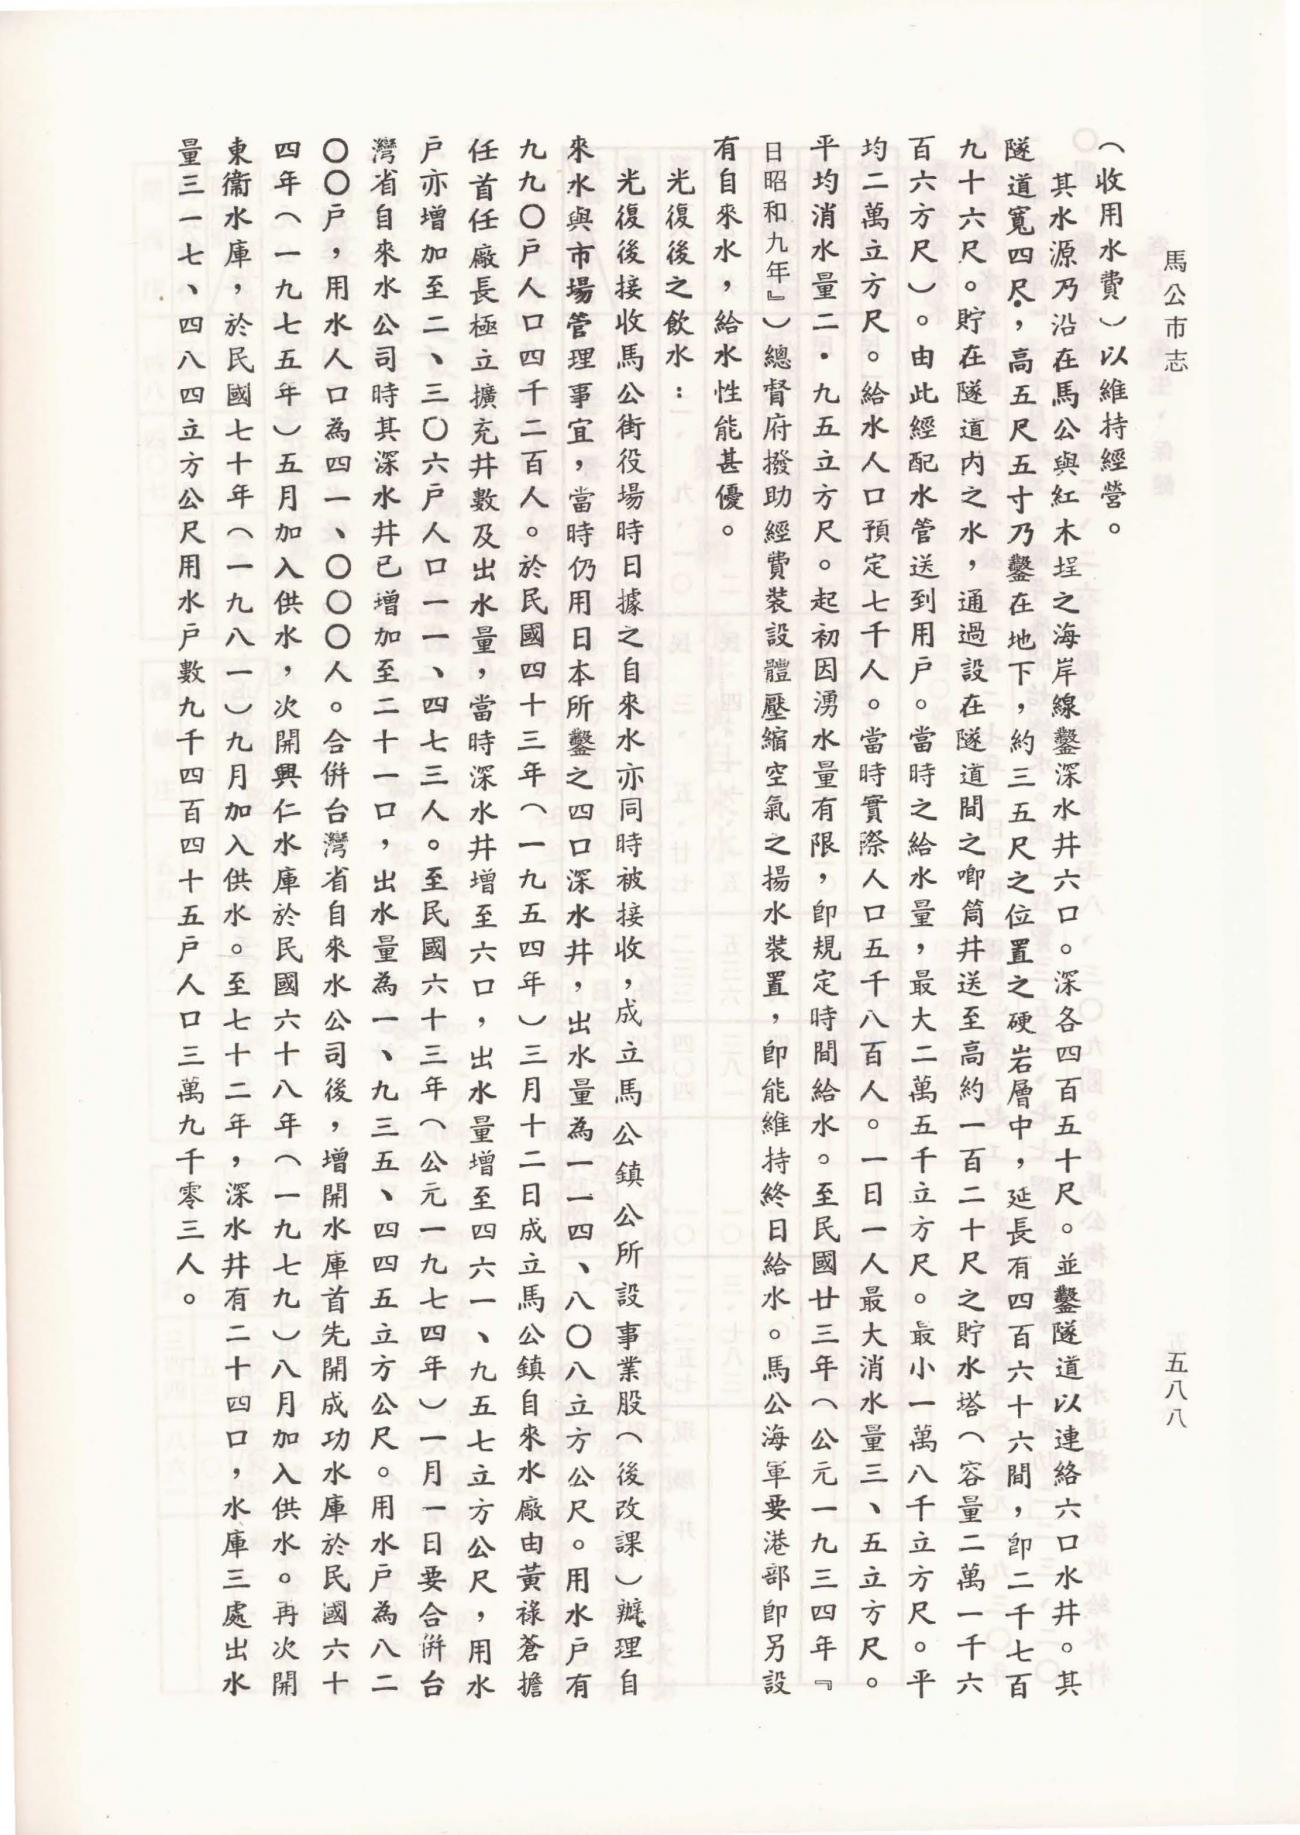 馬公市志
五八八
（收用水費）以維持經營。
其水源乃沿在馬公與紅木埕之海岸線鑿深水井六口。深各四百五十尺。並鑿隧道以連絡六口水井。其
隧道寬四尺，高五尺五寸乃鑿在地下，約三五尺之位置之硬岩層中，延長有四百六十六間，卽二千七百
九十六尺。貯在隧道內之水，通過設在隧道間之唧筒井送至高約一百二十尺之貯水塔（容量二萬一千六
百六方尺）。由此經配水管送到用戶。當時之給水量，最大二萬五千立方尺。最小一萬八千立方尺。平
均二萬立方尺。給水人口預定七千人。當時實際人口五千八百人。一日一人最大消水量三、五立方尺。
平均消水量二・九五立方尺。起初因湧水量有限，卽規定時間給水。至民國廿三年（公元一九三四年『
日昭和九年』）總督府撥助經費裝設體壓縮空氣之揚水裝置，卽能維持終日給水。馬公海軍要港部卽另設
有自來水，給水性能甚優。
光復後之飲水：
光復後接收馬公街役場時日據之自來水亦同時被接收，成立馬公鎮公所設事業股（後改課）辦理自
來水與市場管理事宜，當時仍用日本所鑿之四口深水井，出水量為一一四、八〇八立方公尺。用水戶有
九九〇戶人口四千二百人。於民國四十三年（一九五四年）三月十二日成立馬公鎮自來水廠由黃祿蒼擔
任首任廠長極立擴充井數及出水量，當時深水井增至六口，出水量增至四六一、九五七立方公尺，用水
戶亦增加至二、三〇六戶人口一一、四七三人。至民國六十三年（公元一九七四年）一月一日要合併台
灣省自來水公司時其深水井已增加至二十一口，出水量為一、九三五、四四五立方公尺。用水戶為八二
〇〇戶，用水人口為四一、〇〇〇人。合併台灣省自來水公司後，增開水庫首先開成功水庫於民國六十
四年（一九七五年）五月加入供水，次開興仁水庫於民國六十八年（一九七九）八月加入供水。再次開
東衞水庫，於民國七十年（一九八一）九月加入供水。至七十二年，深水井有二十四口，水庫三處出水
量三一七、四八四立方公尺用水戶數九千四百四十五戶人口三萬九千零三人。